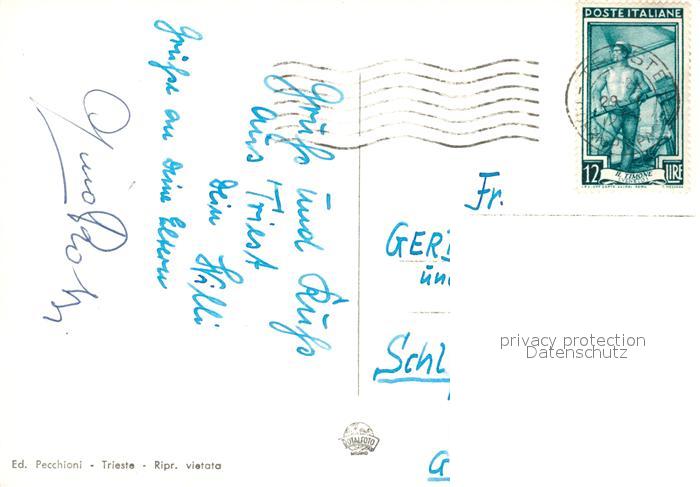 POSTE ITALIANE
12 LIRE
IL TIMONE
Grüße und Kuß
aus Triest
Dein Willi
Grüße an Deine Eltern
Fr.
GER
un
Schl
G
privacy protection
Datenschutz
ITALFOTO
MILANO
Ed. Pecchioni - Trieste - Ripr. vietata